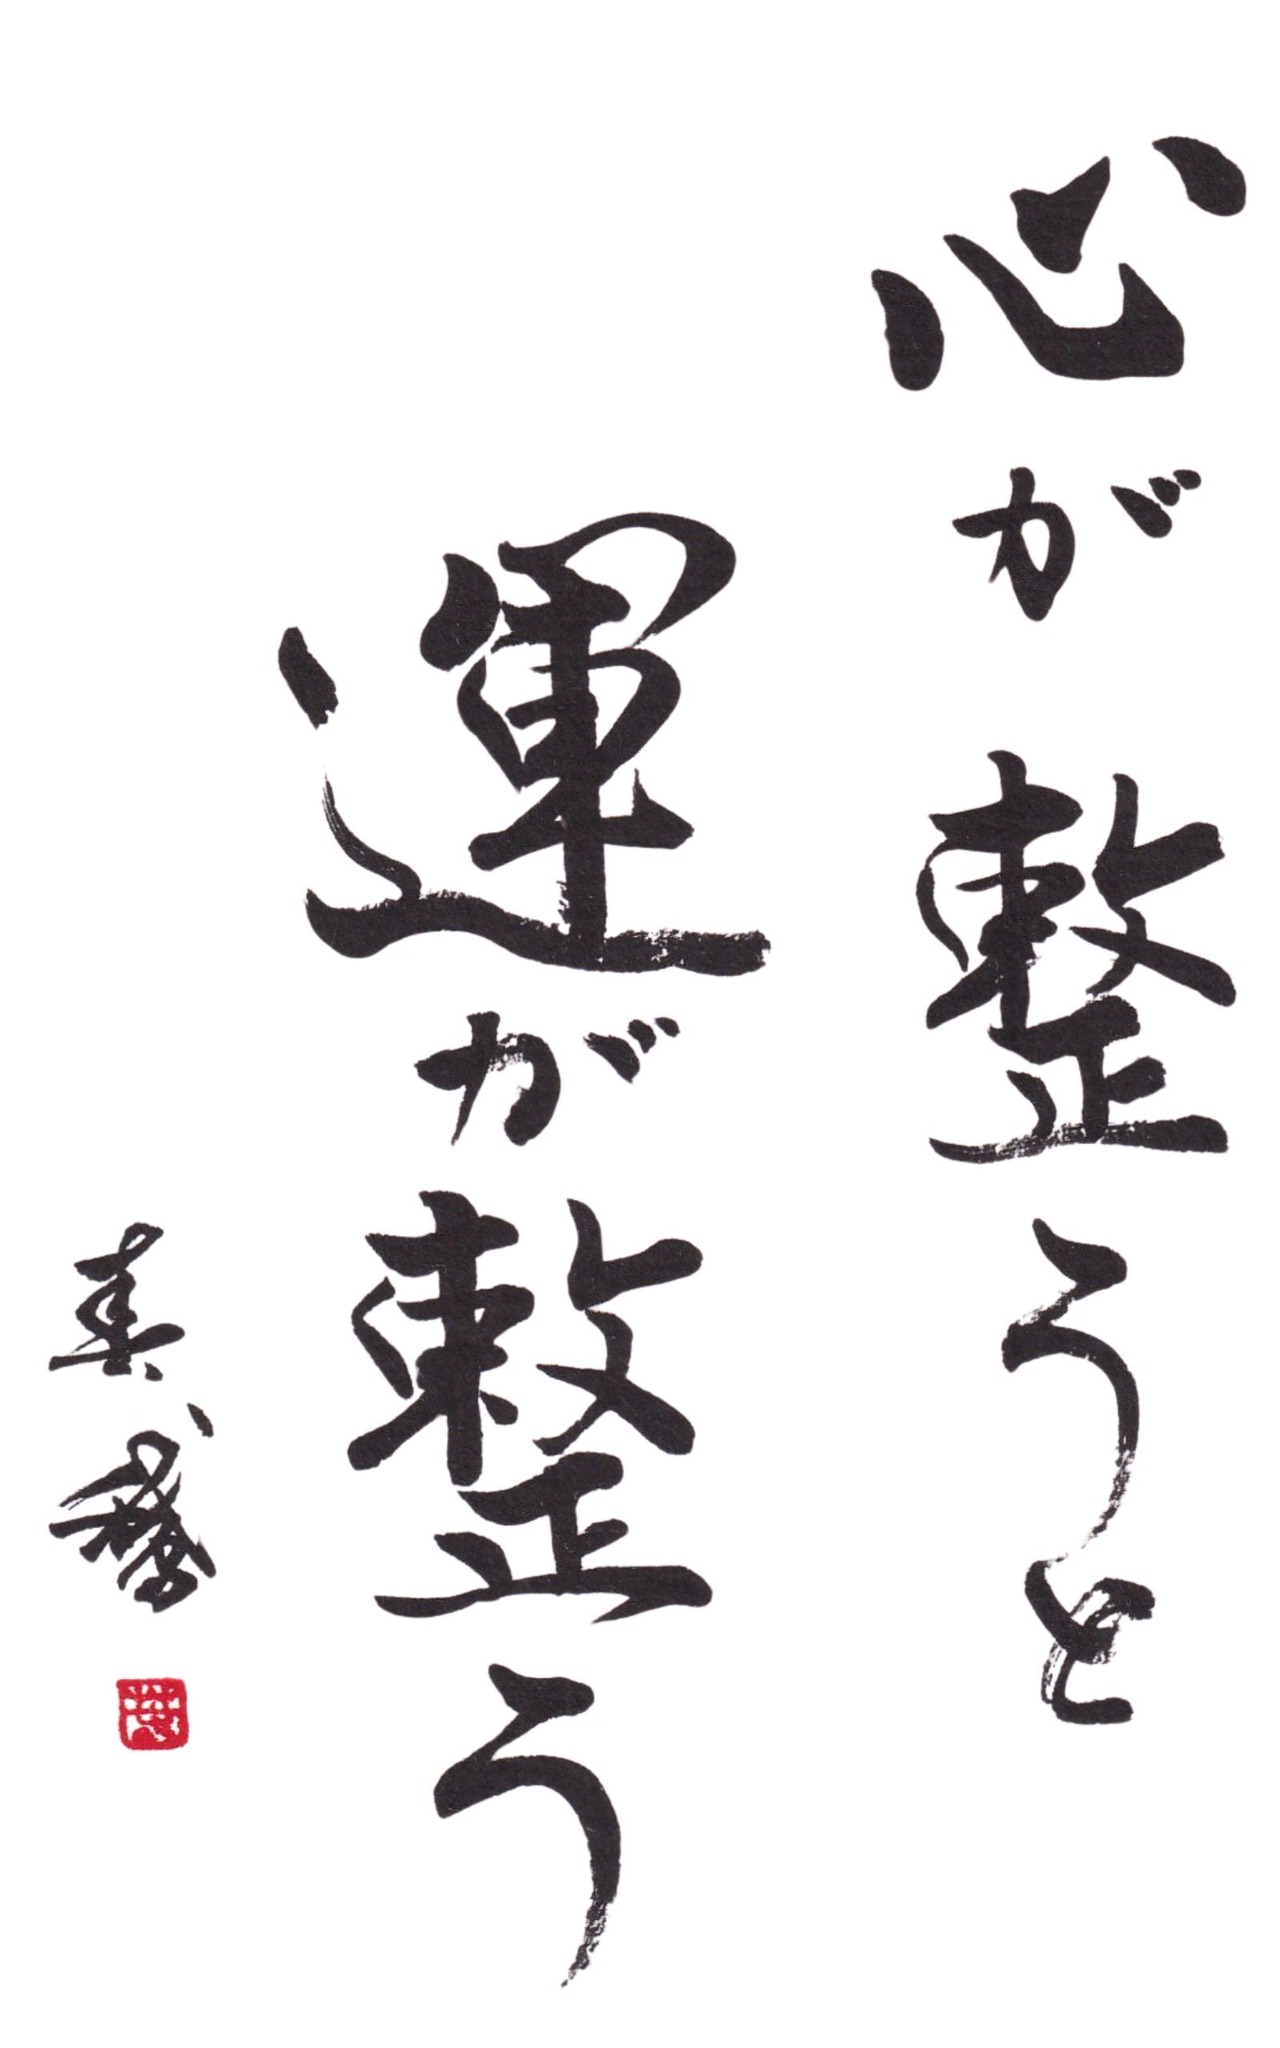 心が整うと
運が整う